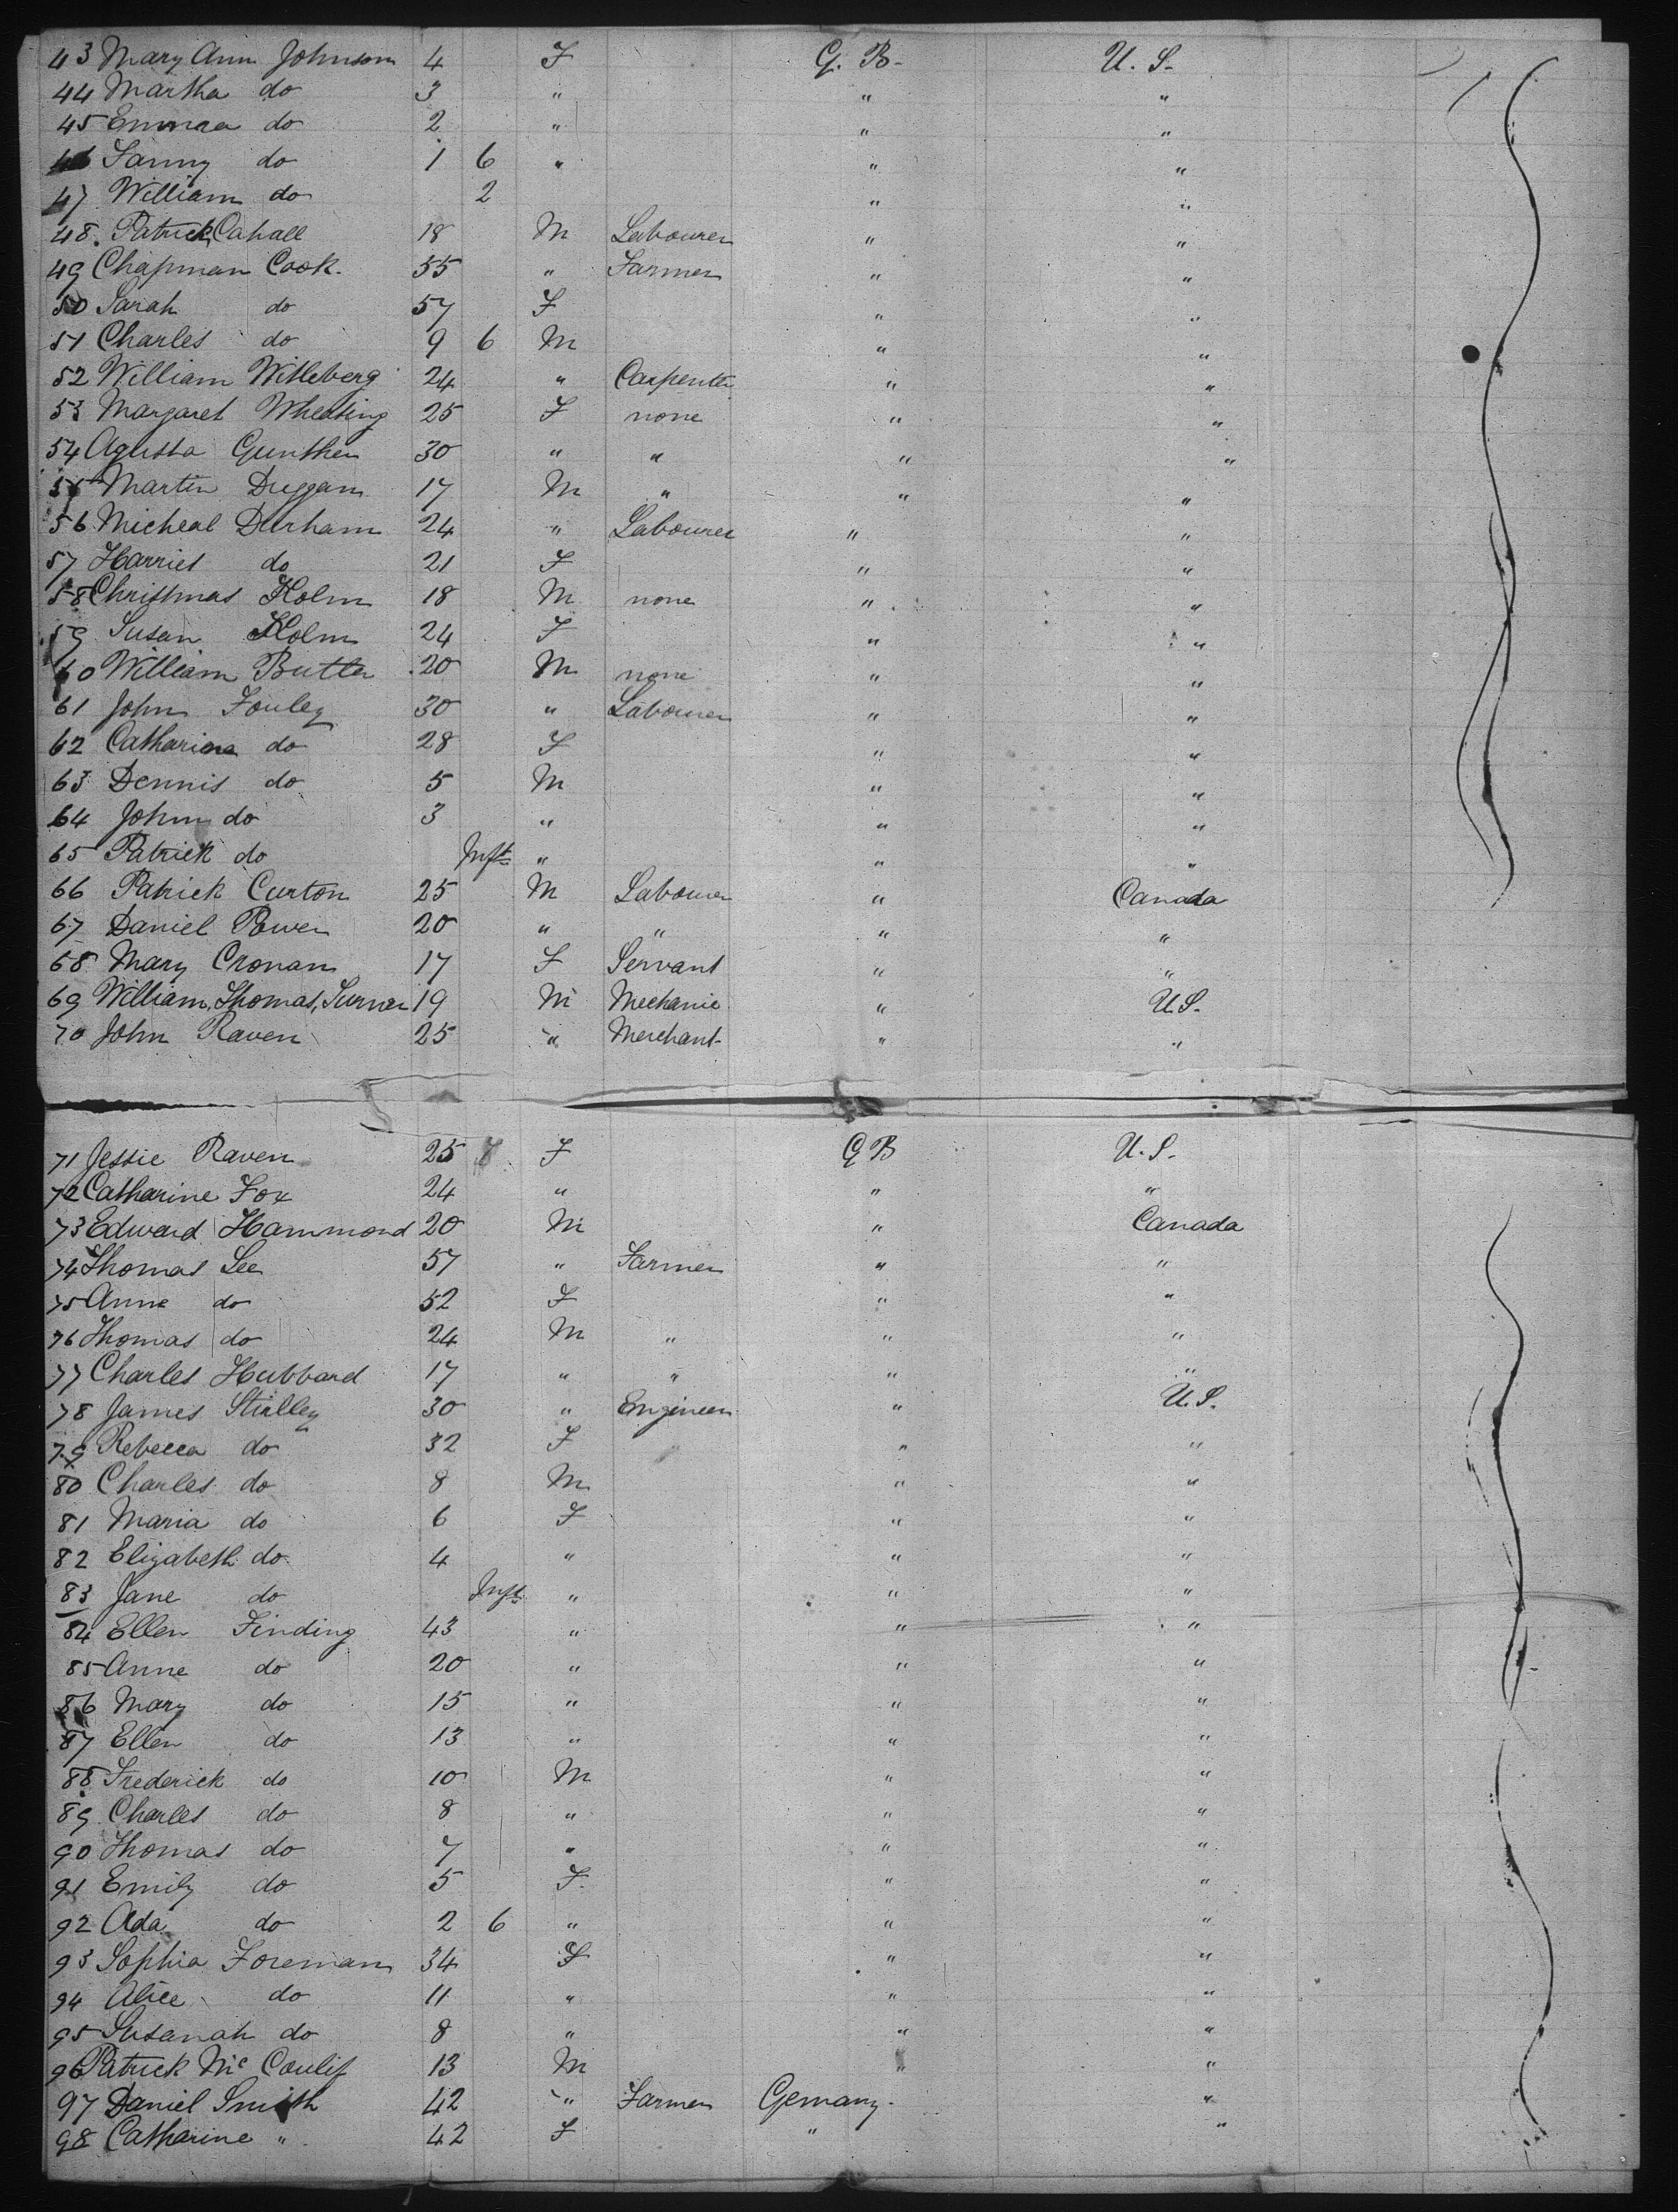 43 Mary Ann Johnson 4 F G. B- U. S-
44 Martha do 3 " " "
45 Emmaa do 2 " " "
46 Fanny do 1 6 " " "
47 William do 2 " "
48. Patrick Cahall 18 M Labourer " "
49 Chapman Cook. 55 " Farmer " "
50 Sarah do 57 F " "
51 Charles do 9 6 M " "
52 William Witleberg 24 " Carpenter " "
53 Margaret Wheating 25 F none " "
54 Agusta Gunther 30 " " " "
55 Martin Duggan 17 M " " "
56 Micheal Durham 24 " Labourer " "
57 Harriet do 21 F " "
58 Christmas Holm 18 M none " "
59 Susan Holm 24 F " "
60 William Butler 20 M none " "
61 John Fouley 30 " Labourer " "
62 Catharine do 28 F " "
63 Dennis do 5 M " "
64 John do 3 " " "
65 Patrick do Inft " " "
66 Patrick Curton 25 M Labourer " Canada
67 Daniel Power 20 " " " "
68 Mary Cronan 17 F Servant " "
69 William, Thomas, Turner 19 M Mechanic " U.S.
70 John Raven 25 " Merchant " "
71 Jessie Raven 25 F G B U. S.
72 Catharine Fox 24 " " "
73 Edward Hammond 20 M " Canada
74 Thomas Lee 57 " Farmer " "
75 Anne do 52 F " "
76 Thomas do 24 M " " "
77 Charles Hubbard 17 " " " "
78 James Stirlley 30 " Engineer " U.S.
79 Rebecca do 32 F " "
80 Charles do 8 M " "
81 Maria do 6 F " "
82 Elizabeth do 4 " " "
83 Jane do Inft " " "
84 Ellen Finding 43 " " "
85 Anne do 20 " " "
86 Mary do 15 " " "
87 Ellen do 13 " " "
88 Frederick do 10 M " "
89 Charles do 8 " " "
90 Thomas do 7 " " "
91 Emily do 5 F. " "
92 Ada do 2 6 " " "
93 Sophia Foreman 34 F " "
94 Alice do 11 " " "
95 Susanah do 8 " " "
96 Patrick Mc Coulif 13 M " "
97 Daniel Smith 42 " Farmer Gemany. "
98 Catharine " 42 F " "